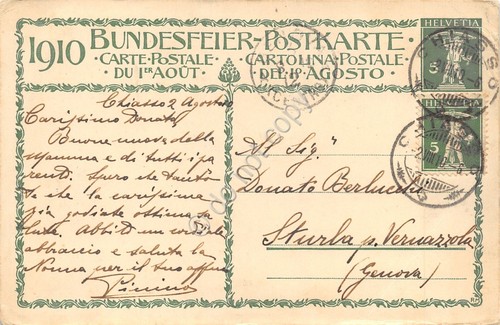 1910 BUNDESFEIER-POSTKARTE
CARTE·POSTALE · CARTOLINA·POSTALE
DU 1ER AOÛT · DEL 1º AGOSTO
HELVETIA
5
HELVETIA
5
CHIASSO
Chiasso 2 Agosto
Carissimo Donato
Buone nuove della
mamma e di tutti i pa
renti. spero che tanto
te che la carissima
zia godiate ottima sa
lute. Abbiti un cordiale
abbraccio e saluta la
Nonna per il tuo affmo
Al Sig.
Donato Berlucchi
Sturla p. Vernazzola
(Genova)